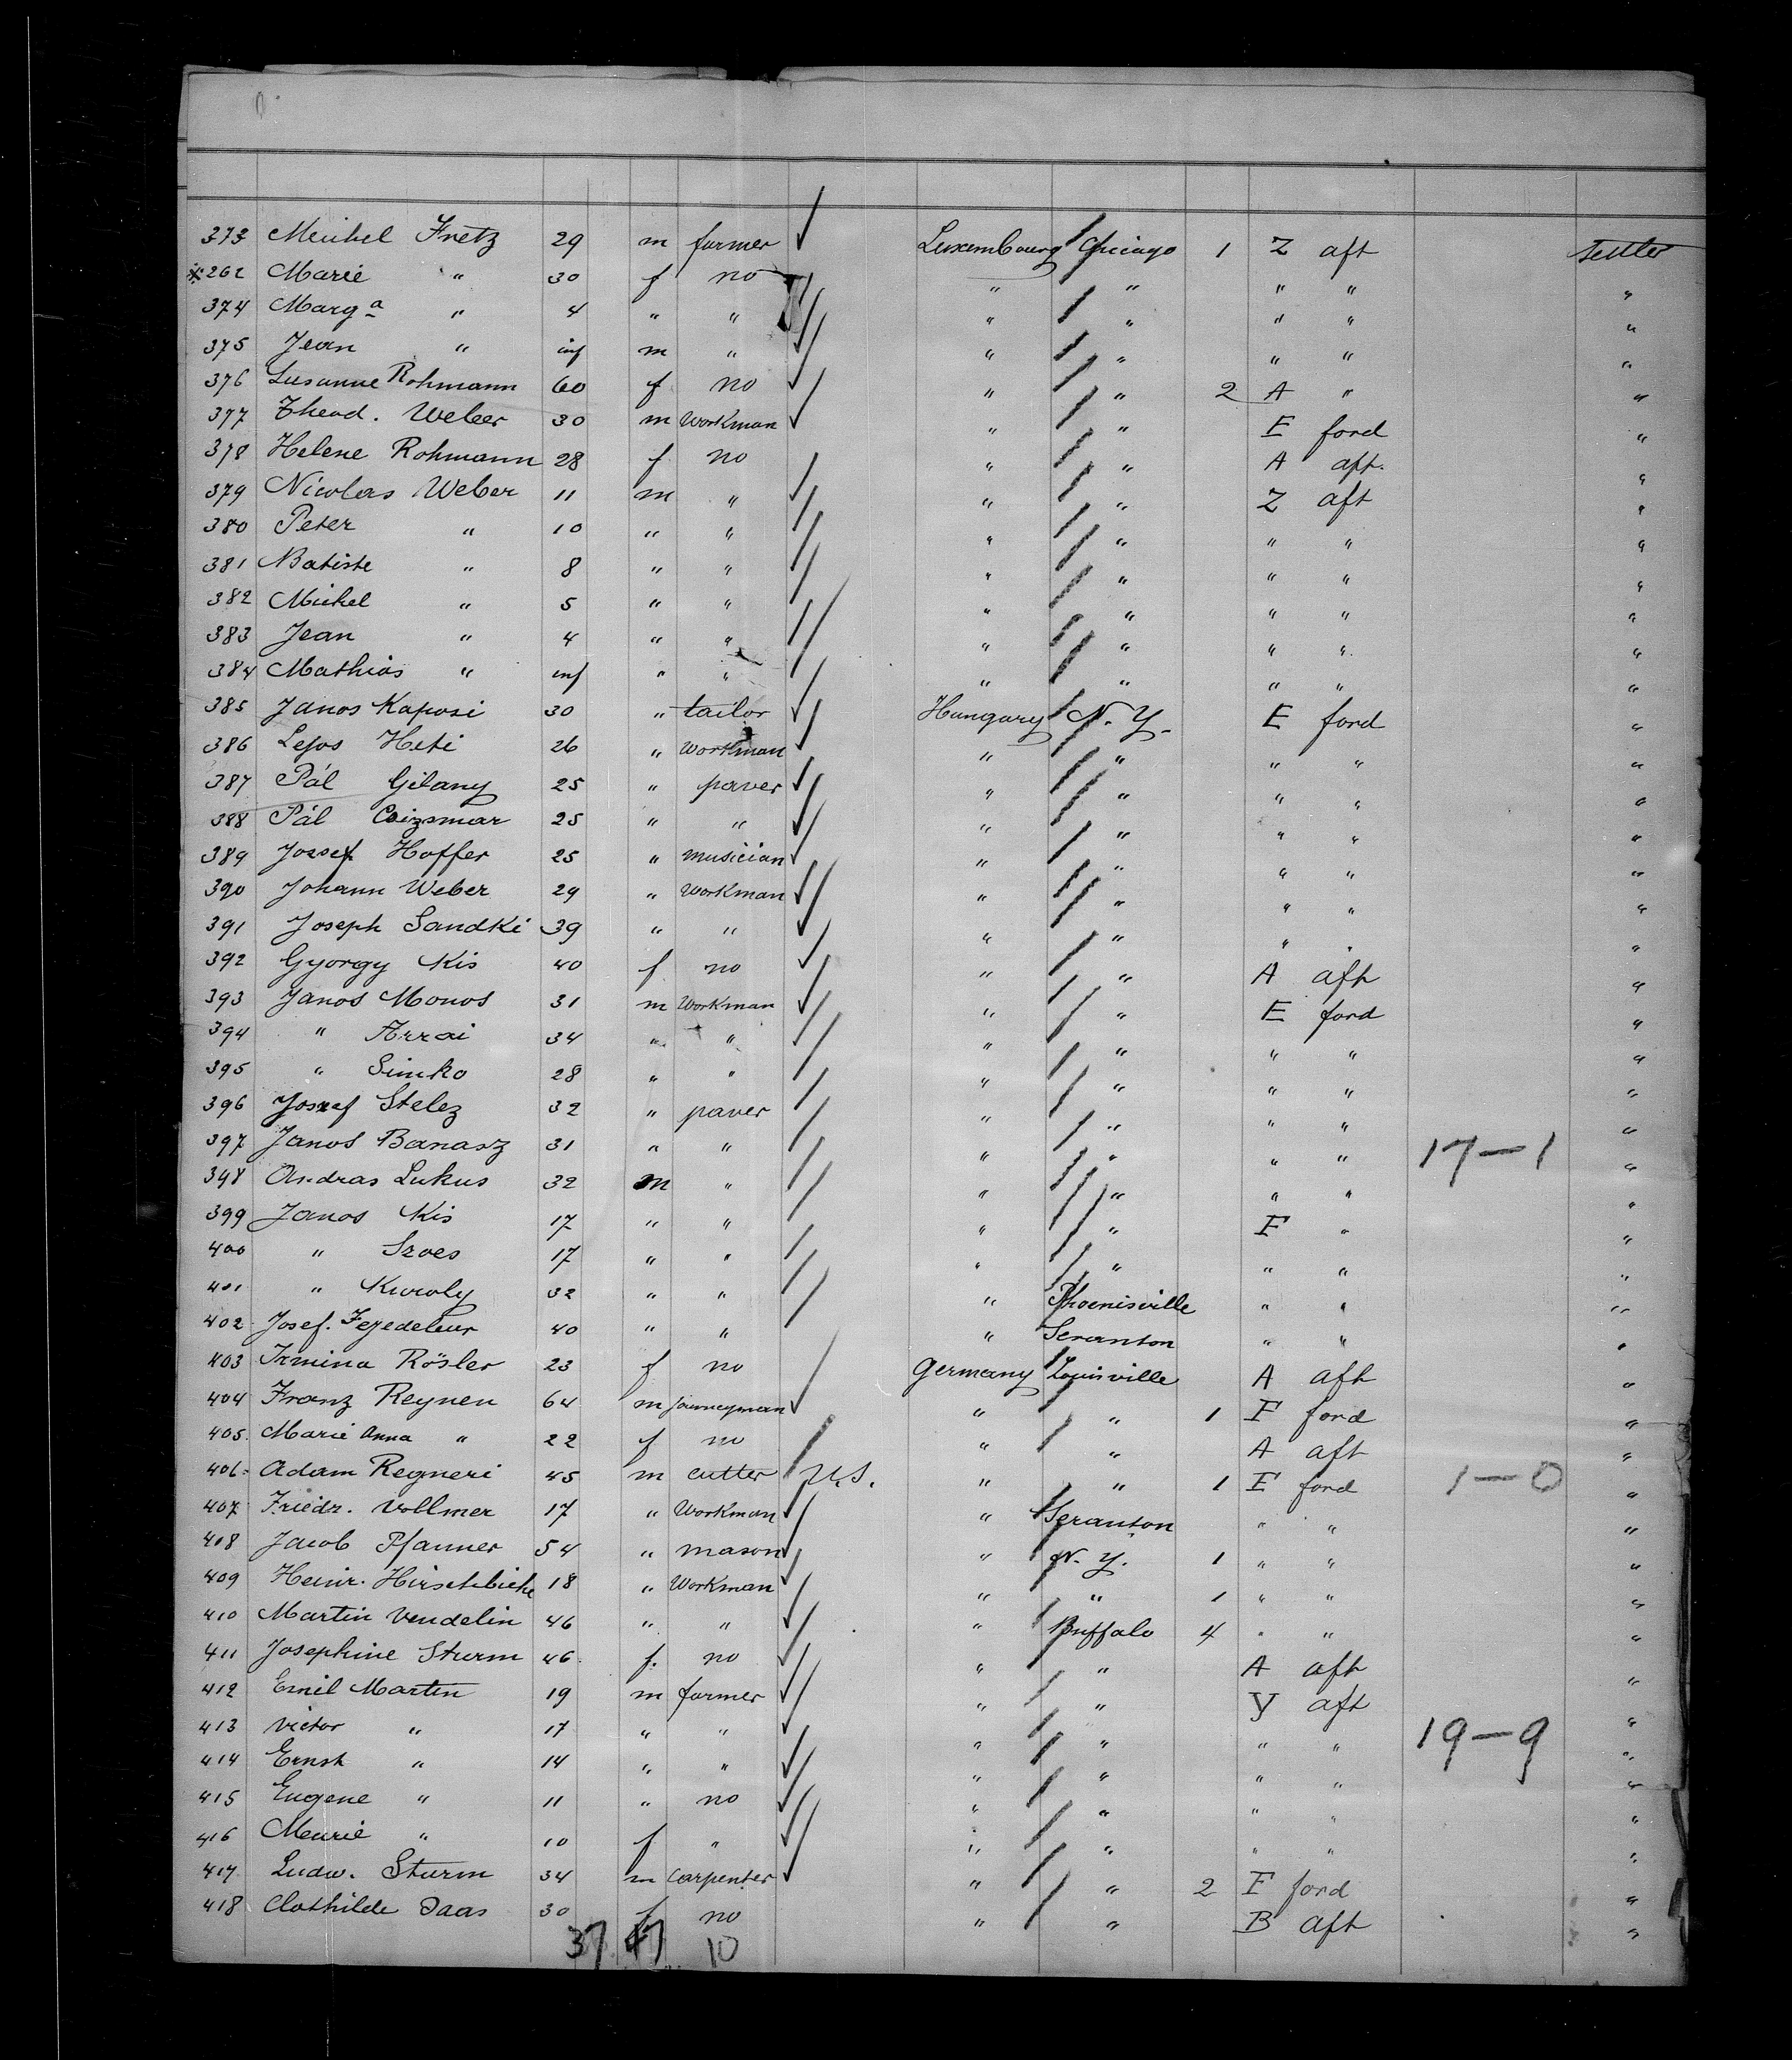 373 Meichel Fretz 29 m farmer Luxembourg Chicago 1 Z aft settler
*262 Marie " 30 f no " " " " "
374 Marga " 4 " " " " " " "
375 Jean " inf m " " " " " "
376 Susanne Rohmann 60 f no " " 2 A " "
377 Theod. Weber 30 m Workman " " E ford "
378 Helene Rohmann 28 f no " " A aft. "
379 Nicolas Weber 11 m " " " Z aft "
380 Peter " 10 " " " " " " "
381 Batiste " 8 " " " " " " "
382 Michel " 5 " " " " " " "
383 Jean " 4 " " " " " " "
384 Mathias " inf " " " " " " "
385 Janos Kaposi 30 " tailor Hungary N.Y. E ford "
386 Lejos Heti 26 " workman " " " " "
387 Pál Gilany 25 " paver " " " " "
388 Pál Csizsmar 25 " " " " " " "
389 Jossef Hoffer 25 " musician " " " " "
390 Johann Weber 29 " Workman " " " " "
391 Joseph Sandki 39 " " " " " " "
392 Gyorgy Kis 40 f no " " A aft "
393 Janos Monos 31 m Workman " " E ford "
394 " Arrai 34 " " " " " " "
395 " Simko 28 " " " " " " "
396 Joszef Stelez 32 " paver " " " " "
397 Janos Banasz 31 " " " " " " 17-1 "
398 Andras Lukus 32 m " " " " " "
399 Janos Kis 17 " " " " F " "
400 " Szoes 17 " " " " " " "
401 " Kuroly 32 " " " Phoenisville " " "
402 Josef. Fejedeleur 40 " " " Scranton " " "
403 Irmina Rösler 23 f no Germany Louisville A aft "
404 Franz Reynen 64 m journeyman " " 1 F ford "
405. Marie Anna " 22 f no " " A aft "
406. Adam Regneri 45 m cutter U.S. " " 1 F ford 1-0 "
407 Friedr. Vollmer 17 " Workman " Scranton " " "
408 Jacob Pfanner 54 " mason " N.Y. 1 " " "
409 Heinr. Hirschbiche 18 " Workman " " 1 " " "
410 Martin Vendelin 46 " " " Buffalo 4 " " "
411 Josephine Sturm 46 f. no " " A aft "
412 Emil Martin 19 m farmer " " Y aft "
413 Victor " 17 " " " " " " 19-9 "
414 Ernst " 14 " " " " " " "
415 Eugene " 11 " no " " " " "
416 Meurie " 10 f " " " " " "
417 Ludw. Sturm 34 m carpenter " " 2 F ford "
418 Clothilde Daas 30 f no " " B aft "
37 47 10